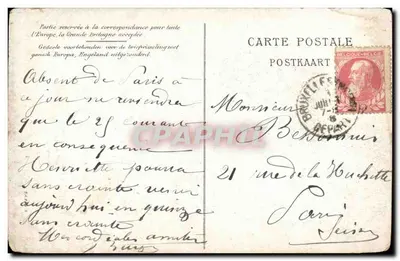 Partie réservée à la correspondance pour toute
l'Europe, la Grande Bretagne exceptée
Gedeelte voorbehouden voor de briefwisseling met
gansch Europa, Engeland uitgezonderd
CARTE POSTALE
POSTKAART
Absent de Paris à
ce jour ne reviendrai
que le 25 courant
en conséquence
Henriette pourra
sans crainte venir
aujourd'hui en quinze
sans crainte
Mes cordiales amitiés
Monsieur
21 rue de la Huchette
Paris
Seine
BRUXELLES
DEPART
CARTES POSTALES